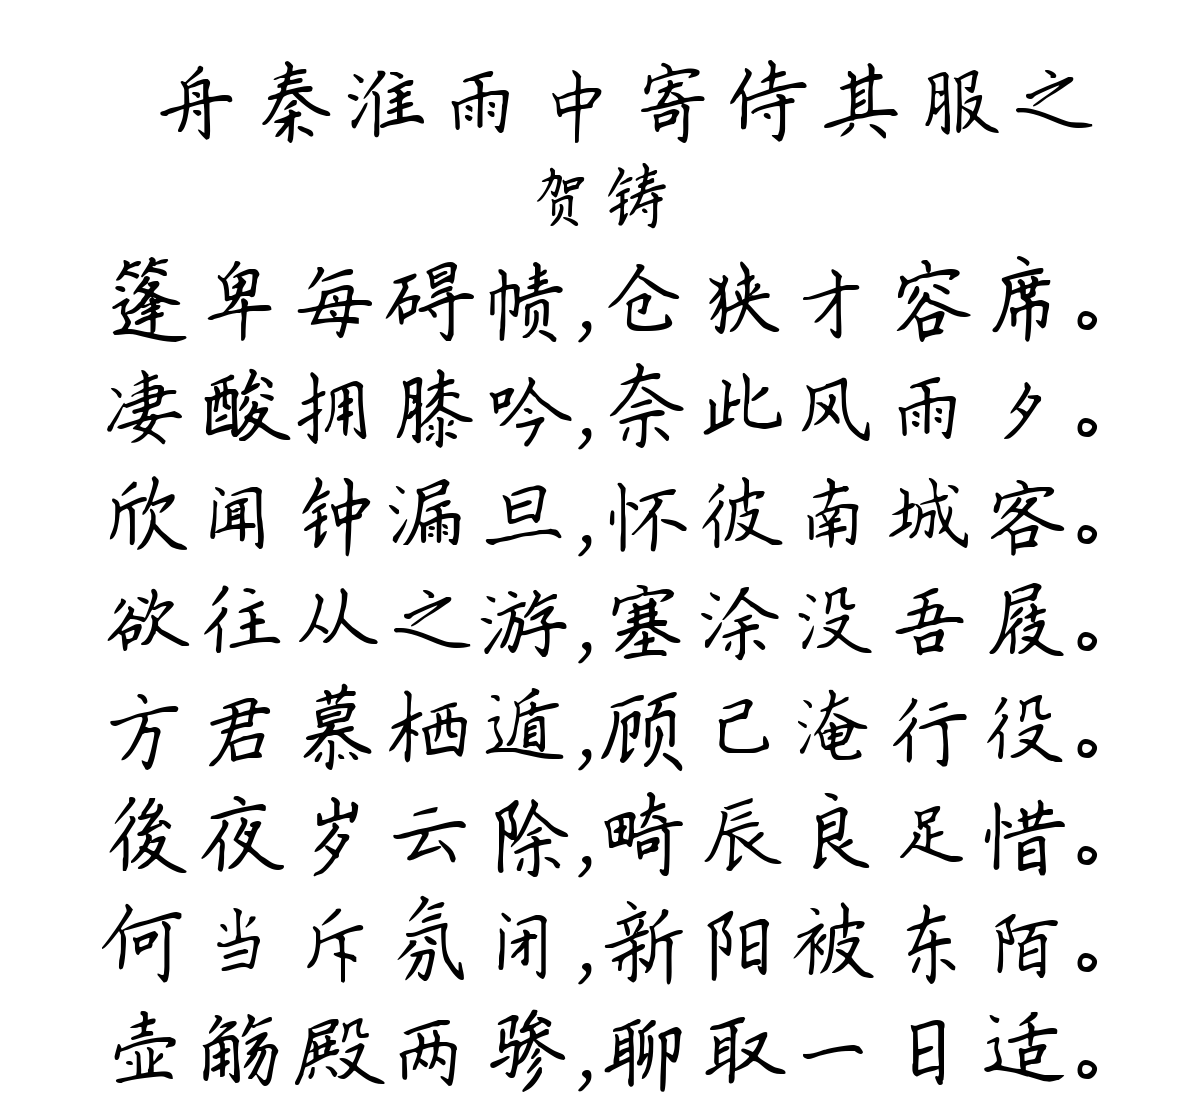 舟秦淮雨中寄侍其服之
贺铸
篷卑每碍帻,仓狭才容席。
凄酸拥膝吟,奈此风雨夕。
欣闻钟漏旦,怀彼南城客。
欲往从之游,塞涂没吾屐。
方君慕栖遁,顾己淹行役。
後夜岁云除,畸辰良足惜。
何当斥氛闭,新阳被东陌。
壶觞殿两骖,聊取一日适。